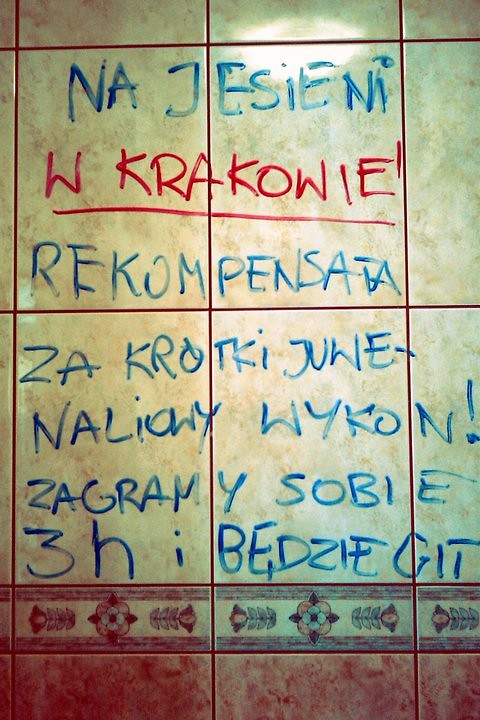 NA JESiENi
W KRAKOWIE!
REKOMPENSATA
ZA KRÓTKi JUWE-
NALIOWY WYKON!
ZAGRAMY SOBIE
3h i BĘDZIE GIT